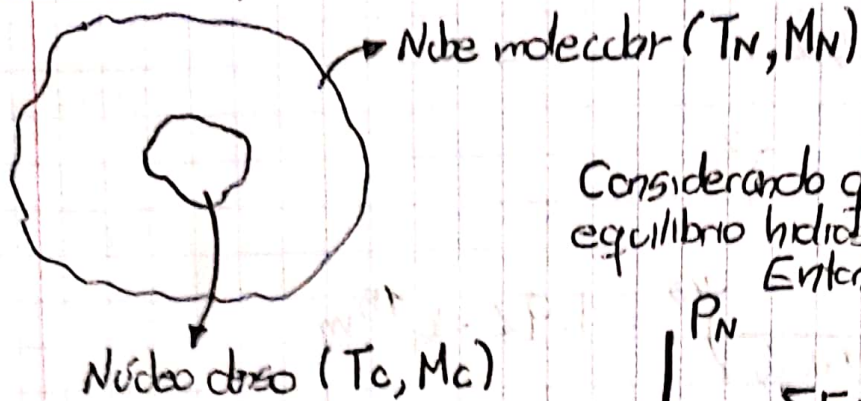 Nube molecular (TN, MN)
Considerando q
equilibrio hidros
Enton
PN
Núcleo denso (Tc, Mc)